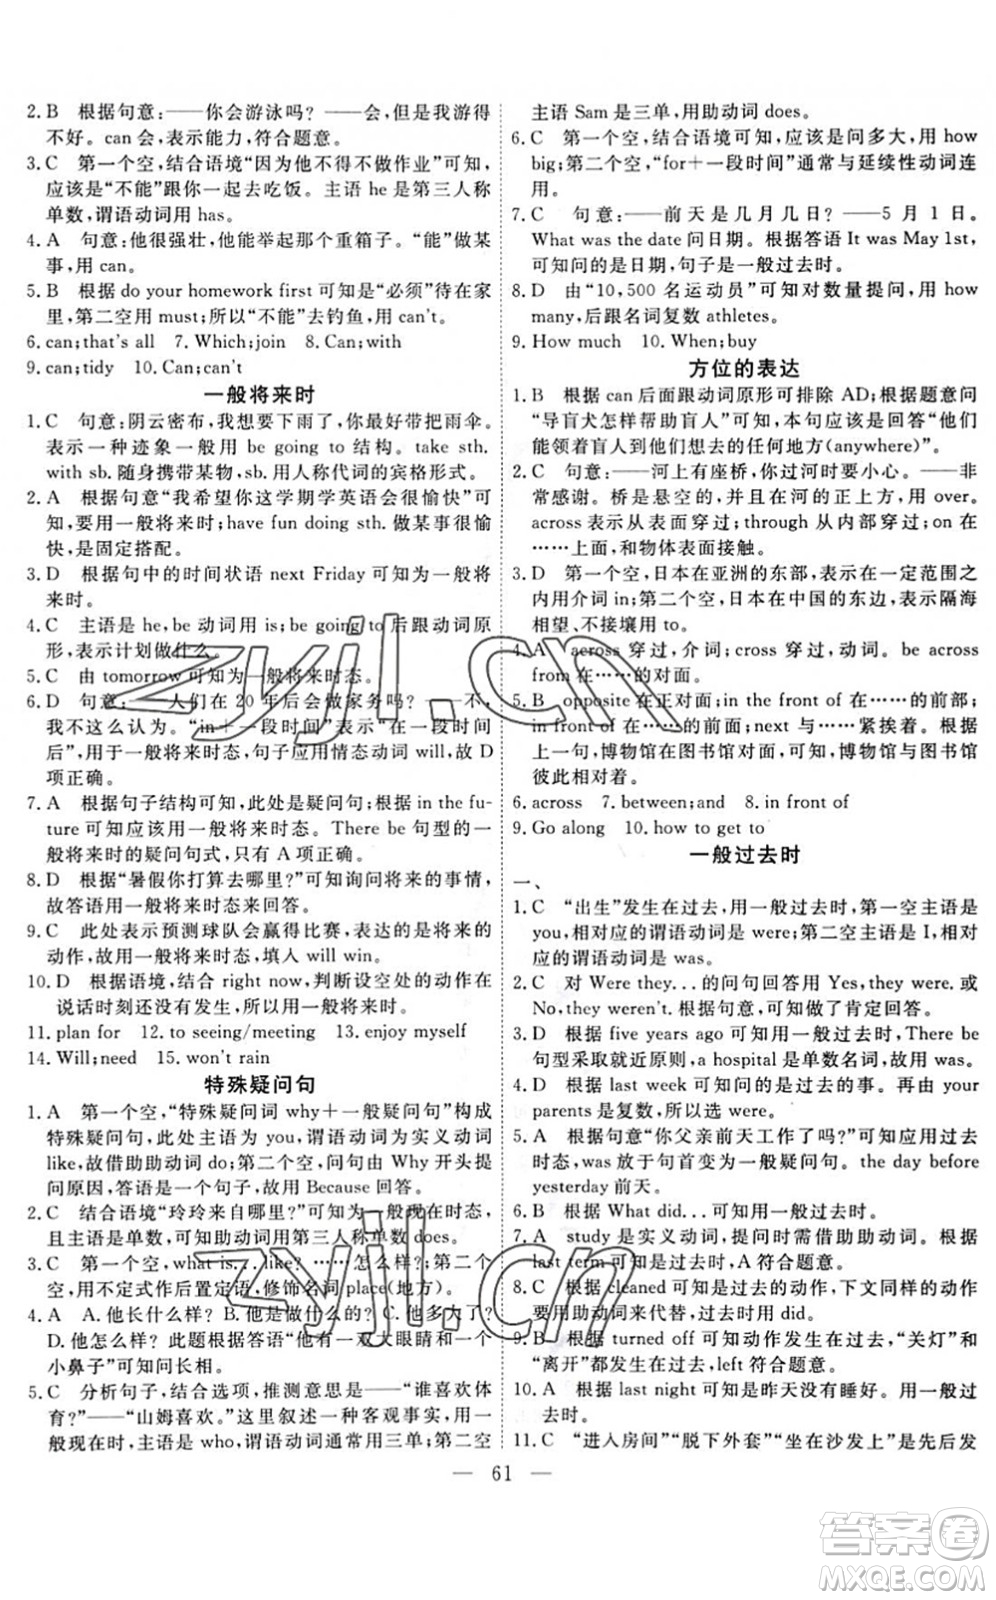 2. B 根据句意:——你会游泳吗? ——会,但我游得
不好。can 会,表示能力,符合题意。
3. C 第一个空,结合语境“因为他不得不做作业”可知,
应该是“不能”跟你一起去吃饭。主语 he 是第三人称
单数,谓语动词用 has。
4. A 句意:他很强壮,他能举起那个重箱子。“能”做某
事,用 can。
5. B 根据 do your homework first 可知是“必须”待在家
里,第二空用 must;所以“不能”去钓鱼,用 can't。
6. can;that's all 7. Which;join 8. Can;with
9. can;tidy 10. Can;can't
一般将来时
1. C 句意:阴云密布,我想要下雨了,你最好带把雨伞。
表示一种迹象一般用 be going to 结构。take sth.
with sb. 随身携带某物,sb. 用人称代词的宾格形式。
2. A 根据句意“我希望你这学期学英语会很愉快”可
知,要用一般将来时;have fun doing sth. 做某事很愉
快,是固定搭配。
3. D 根据句中的时间状语 next Friday 可知为一般将
来时。
4. C 主语是 he,be 动词用 is;be going to 后跟动词原
形,表示计划做什么。
5. C 由 tomorrow 可知是一般将来时态。
6. D 句意:——人们在 20 年后会做家务吗? ——不,
我不这么认为。“in+一段时间”表示“在一段时间
后”,是一般将来时态,句子应用情态动词 will,故 D
项正确。
7. A 根据句子结构可知,此处是疑问句;根据 in the fu-
ture 可知应该用一般将来时态。There be 句型的一
般将来时的疑问句式,只有 A 项正确。
8. D 根据“暑假你打算去哪里?”可知询问将来的事情,
故答语用一般将来时态来回答。
9. C 此处表示预测球队会赢得比赛,表达的是将来的
动作,故用一般将来时态,填入 will win。
10. D 根据语境,结合 right now,判断设空处的动作在
说话时刻还没有发生,所以用一般将来时。
11. plan for 12. to seeing/meeting 13. enjoy myself
14. Will;need 15. won't rain
特殊疑问句
1. A 第一个空,“特殊疑问词 why+一般疑问句”构成
特殊疑问句,此处主语为 you,谓语动词为实义动词
like,故借助助动词 do;第二个空,问句由 Why 开头提
问原因,答语是一个句子,故用 Because 回答。
2. C 结合语境“玲玲来自哪里?”可知为一般现在时态,
且主语是单数,故助动词用第三人称单数 does。
3. C 第一个空,what is...like? ……怎么样? 第二个
空,用不定式作后置定语,修饰名词 place(地方)。
4. A A. 他长什么样? B. 他是做什么的? C. 他多大了?
D. 他怎么样? 此题根据答语“他有一双大眼睛和一个
小鼻子”可知问长相。
5. C 分析句子,结合选项,推测意思是——“谁喜欢体
育?”——“山姆喜欢。”这里叙述一种客观事实,用一
般现在时,主语是 who,谓语动词通常用三单;第二空
主语 Sam 是三单,用助动词 does。
6. C 第一个空,结合语境可知,应该是问多大,用 how
big;第二个空,“for+一段时间”通常与延续性动词连
用。
7. C 句意:——前天是几月几日? ——5 月 1 日。
What was the date 问日期。根据答语 It was May 1st,
可知问的是日期,句子是一般过去时。
8. D 由“10,500 名运动员”可知对数量提问,用 how
many,后跟名词复数 athletes。
9. How much 10. When;buy
方位的表达
1. B 根据 can 后面跟动词原形可排除 AD;根据题意问
“导盲犬怎样帮助盲人”可知,本句应该是回答“他们
能领着盲人到他们想去的任何地方(anywhere)”。
2. C 句意:——河上有座桥,你过河时要小心。——
非常感谢。桥是悬空的,并且在河的正上方,用 over。
across 表示从表面穿过;through 从内部穿过;on 在
……上面,和物体表面接触。
3. D 第一个空,日本在亚洲的东部,表示在一定范围之
内用介词 in;第二个空,日本在中国的东边,表示隔海
相望、不接壤用 to。
4. A across 穿过,介词;cross 穿过,动词。be across
from 在……的对面。
5. B opposite 在正对面;in the front of 在……的前部;
in front of 在……的前面;next 与……紧挨着。根据
上一句,博物馆在图书馆对面,可知,博物馆与图书馆
彼此相对着。
6. across 7. between;and 8. in front of
9. Go along 10. how to get to
一般过去时
一、
1. C “出生”发生在过去,用一般过去时,第一空主语是
you,相对应的谓语动词是 were;第二空主语是 I,相对
应的谓语动词是 was。
2. C 对 Were they...的问句回答用 Yes,they were. 或
No,they weren't. 根据句意,可知做了肯定回答。
3. D 根据 five years ago 可知用一般过去时,There be
句型采取就近原则,a hospital 是单数名词,故用 was。
4. D 根据 last week 可知问的是过去的事。再由 your
parents 是复数,所以选 were。
5. A 根据句意“你父亲前天工作了吗?”可知应用过去
时态,was 放于句首变为一般疑问句。the day before
yesterday 前天。
6. B 根据 What did...可知用一般过去时。
7. A study 是实义动词,提问时需借助助动词。由
last term 可知是过去时,A 符合题意。
8. C 根据 cleaned 可知是过去的动作,下文同样的动作
要用助动词来代替,过去时用 did。
9. B 根据 turned off 可知动作发生在过去,“关灯”和
“离开”都发生在过去,left 符合题意。
10. A 根据 last night 可知是昨天没有睡好。用一般过
去时。
11. C “进入房间”“脱下外套”“坐在沙发上”是先后发
— 61 —
zyjl.cn
zyjl.cn
答案圈
MXQE.COM